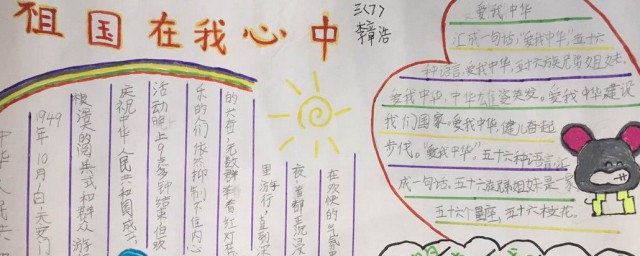 祖国在我心中
三(7)
李章浩
中华人民共
1949年10月1日天安门
横漫天的阅兵式和群众游
庆祝中华人民共和国成立
活动晚上9点多钟结束但欢
乐的们依然抑制不住内心
的大街,无数群举着红灯
里游行,直到深
夜首都無浸
在欢快的气氛里
爱我中华
汇成一句话:"爱我中华"五十六
种语言,爱我中华,五十六族兄弟姐妹,
爱我中华,中华雄姿英发。爱我中华建设
我们国家,爱我中华,健儿奋起
步代。"爱我中华"五十六种语言,汇
成一句话,五十六族兄弟姐妹是一家
五十六个星座,五十六枝花。